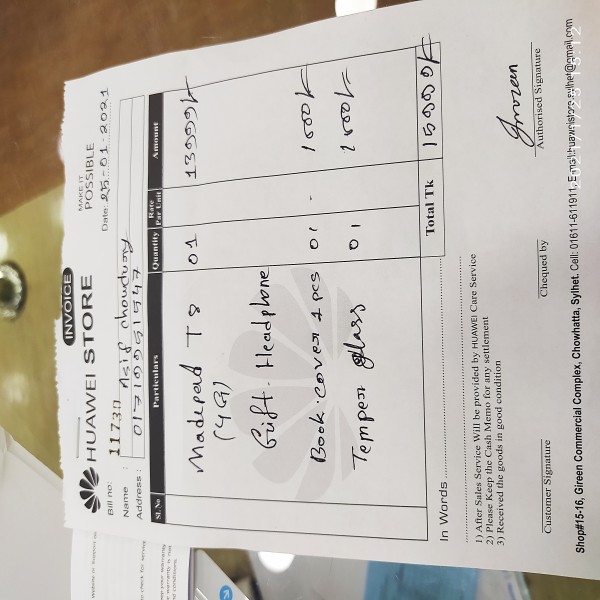 INVOICE
HUAWEI STORE
MAKE IT
POSSIBLE
Bill no: 11737
Date: 25-01-2021
Name : Asif choudury
Address :
Sl. No Particulars Quantity Rate Per Unit Amount
Matepad T8 01 13999/-
(4G)
Gift - Headphone
Book.cover 1 pcs 01 - 1000/-
Temper glass 01
Total Tk 15000/-
In Words
1) After Sales Service Will be provided by HUAWEI Care Service
2) Please Keep the Cash Memo for any settlement
3) Received the goods in good condition
Customer Signature Chequed by Authorised Signature
Shop#15-16, Gireen Commercial Complex, Chowhatta, Sylhet. Cell: 01611-611911, E-mail:huaweistore.sylhet@gmail.com